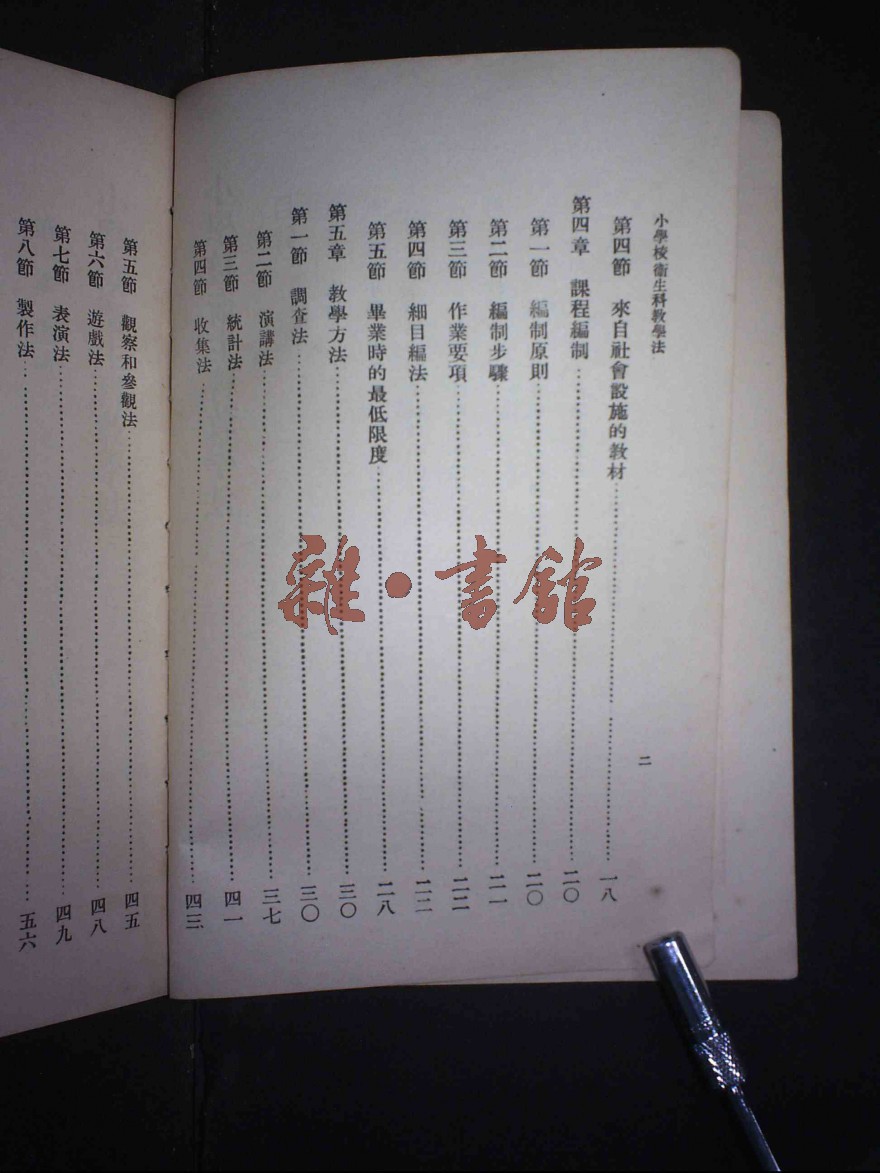 小學校衛生科敎學法
二
第四節　來自社會設施的敎材……一八
第四章　課程編制……二〇
第一節　編制原則……二〇
第二節　編制步驟……二一
第三節　作業要項……二二
第四節　細目編法……二二
第五節　畢業時的最低限度……二八
第五章　敎學方法……三〇
第一節　調查法……三〇
第二節　演講法……三七
第三節　統計法……四一
第四節　收集法……四三
第五節　觀察和參觀法……四五
第六節　遊戲法……四八
第七節　表演法……四九
第八節　製作法……五六
雜·書館